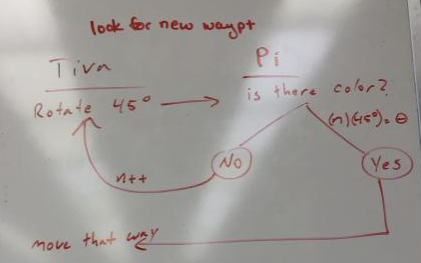 look for new waypt
Tiva
Pi
Rotate 45°
is there color?
(n)(45°)=θ
No
Yes
n++
move that way